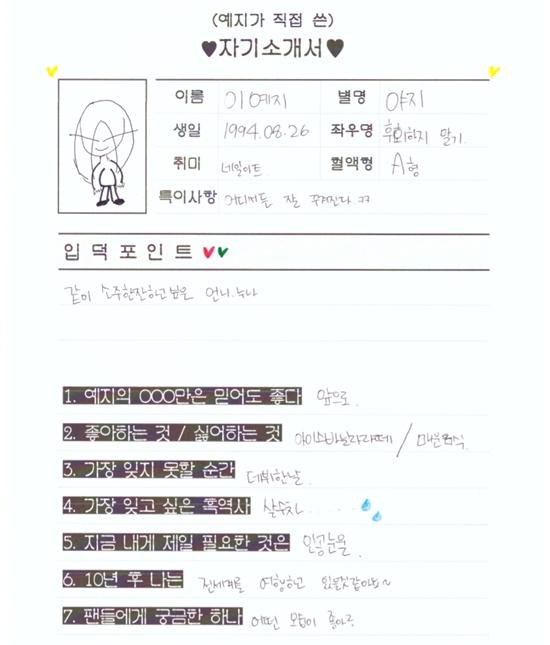 (예지가 직접 쓴)
♥자기소개서♥
이름 이예지 별명 야지
생일 1994.08.26 좌우명 후회하지 말기.
취미 네일아트 혈액형 A형
특이사항 어디서든 잘 꾸겨진다 ㅋㅋ
입덕포인트
같이 소주한잔하고싶은 언니.누나
1. 예지의 OOO만은 믿어도 좋다 앞으로
2. 좋아하는 것 / 싫어하는 것 아이스바닐라라떼 / 매운음식.
3. 가장 잊지 못할 순간 데뷔한날.
4. 가장 잊고 싶은 흑역사 살수차......
5. 지금 내게 제일 필요한 것은 인공눈물.
6. 10년 후 나는 전세계를 여행하고 있을것같아요~
7. 팬들에게 궁금한 하나 어떤 모습이 좋아?